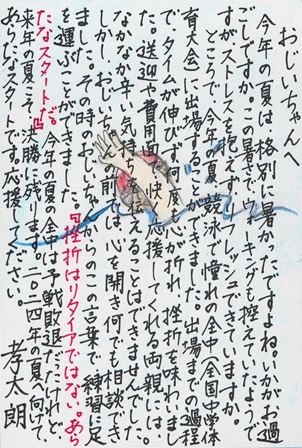 おじいちゃんへ
今年の夏は、格別に暑かったですよね。いかがお過
ごしですか。この暑さで、ウォーキングも控えていたようで
すがストレスを抱えず、リフレッシュできていますか。
ところで、今年の夏、競泳で憧れの全中(全国中学体
育大会)に出場することができました。出場までの過程
で、タイムが伸びず、何度も心が折れ、挫折を味わいまし
た。送迎や費用面で快く応援してくれる両親には、
なかなか辛い気持ちを伝えることはできませんでした。
しかし、おじいちゃんの前では、心を開き何でも相談でき
ました。その時のおじいちゃんからのこの言葉で、練習に足
を運ぶことができました。「挫折はリタイアではない。あら
たなスタートだ。」今年の夏の全中は予戦敗退だったけれど、
来年の夏こそ、決勝に残ります。二〇二四年の夏へ向けて、
あらたなスタートです。応援してください。
孝太朗